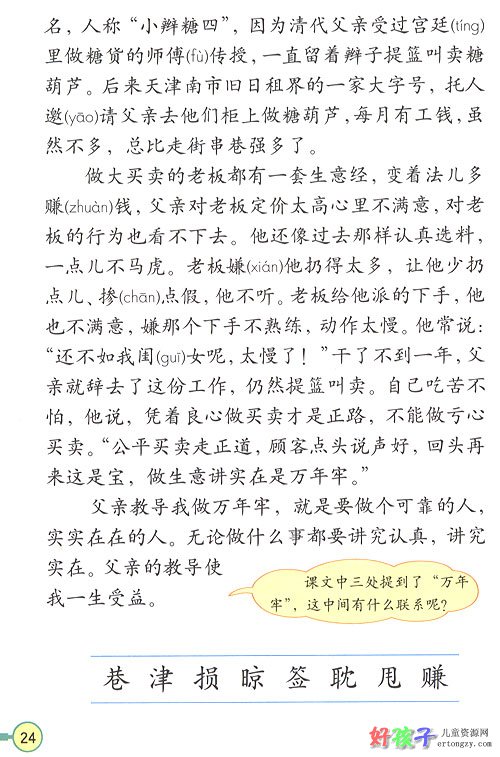 名，人称“小辫糖四”，因为清代父亲受过宫廷(tíng)
里做糖货的师傅(fù)传授，一直留着辫子提篮叫卖糖
葫芦。后来天津南市旧日租界的一家大字号，托人
邀(yāo)请父亲去他们柜上做糖葫芦，每月有工钱，虽
然不多，总比走街串巷强多了。
做大买卖的老板都有一套生意经，变着法儿多
赚(zhuàn)钱，父亲对老板定价太高心里不满意，对老
板的行为也看不下去。他还像过去那样认真选料，
一点儿不马虎。老板嫌(xián)他扔得太多，让他少扔
点儿、掺(chān)点假，他不听。老板给他派的下手，他
也不满意，嫌那个下手不熟练，动作太慢。他常说：
“还不如我闺(guī)女呢，太慢了！”干了不到一年，父
亲就辞去了这份工作，仍然提篮叫卖。自己吃苦不
怕，他说，凭着良心做买卖才是正路，不能做亏心
买卖。“公平买卖走正道，顾客点头说声好，回头再
来这是宝，做生意讲实在是万年牢。”
父亲教导我做万年牢，就是要做个可靠的人，
实实在在的人。无论做什么事都要讲究认真，讲究
实在。父亲的教导使
我一生受益。
课文中三处提到了“万年
牢”，这中间有什么联系呢？
巷 津 损 晾 签 耽 甩 赚
24
好孩子 儿童资源网
ertongzy.com